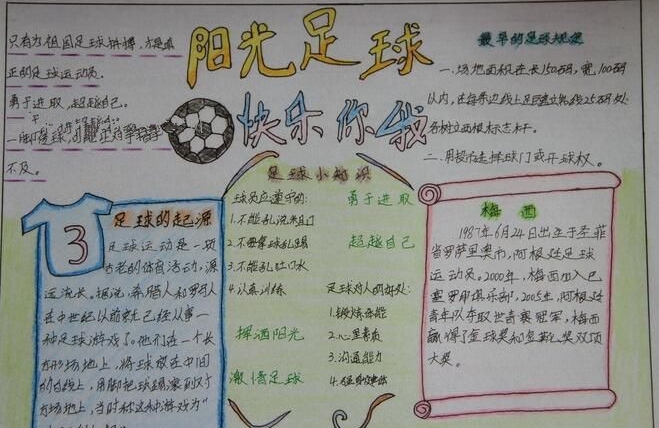 阳光足球
快乐你我
只有为祖国足球拼搏,才是真
正的足球运动员。
勇于进取,超越自己。
不及。
最早的足球规定
一.场地面积在长150码,宽100码
以内,在每条边线上
各树立两根标志杆。
二.用投币选择球门或开球权。
足球的起源
3
足球运动是一项
古老的体育活动,源
远流长。据说,希腊人和罗马人
在中世纪以前就已经从事一
种足球游戏了。他们在一个长
方形场地上,将球放在中间
的白线上,用脚把球踢滚到对方
场地上,当时称这种游戏为“
足球小知识
球员应遵守的:
1.不能乱洗来且门
2.不毋拿球乱踢
3.不能乱吐口水
4.认真训练
勇于进取
超越自己
挥洒阳光
激情足球
足球对人的好处:
1.锻炼体能
2.心里素质
3.沟通能力
4.
梅西
1987年6月24日出生于圣菲
省罗萨里奥市,阿根廷足球
运动员。2000年,梅西加入巴
塞罗那俱乐部,2005年,阿根廷
青年队夺取世青赛冠军,梅西
赢得了金球奖和金靴奖双项
大奖。